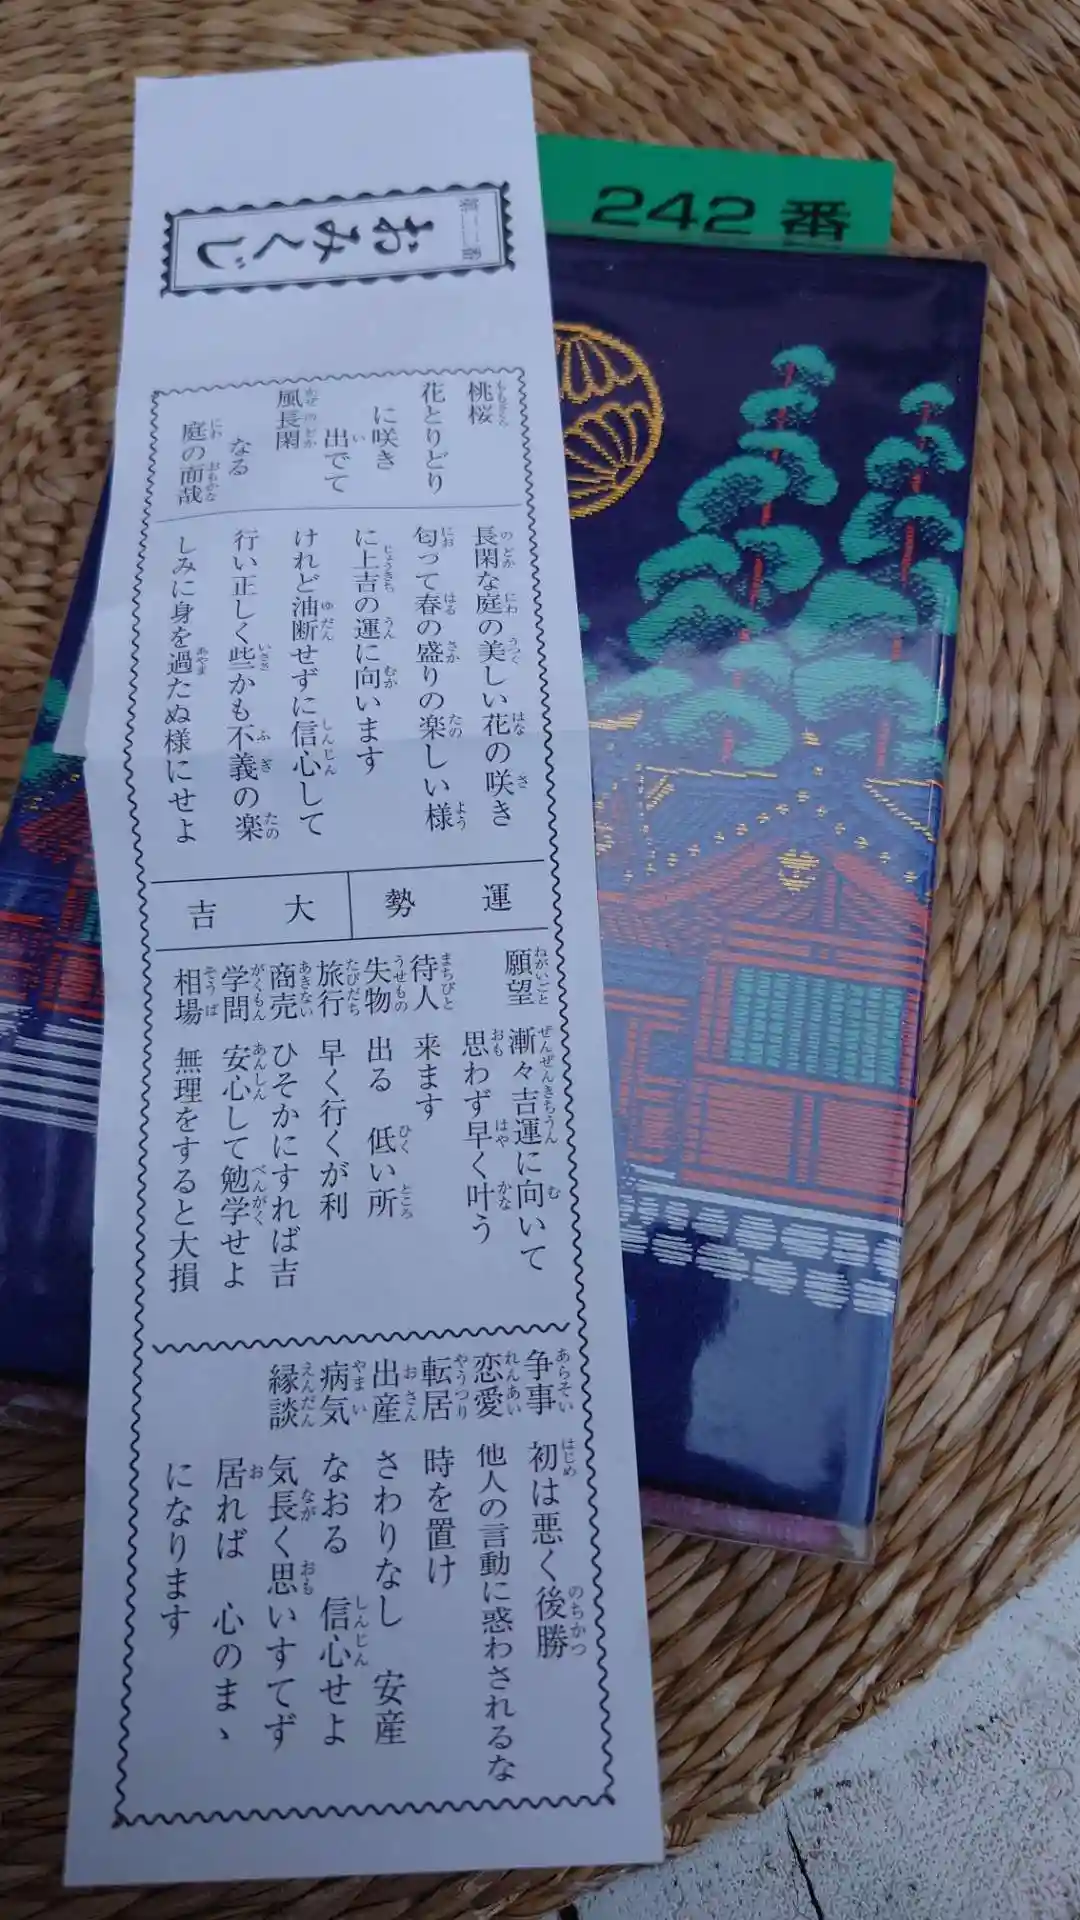 おみくじ
242 番
桃桜
花とりどり
に咲き
出でて
風長閑
なる
庭の面哉
長閑な庭の美しい花の咲き
匂って春の盛りの楽しい様
に上吉の運に向います
けれど油断せずに信心して
行い正しく些かも不義の楽
しみに身を過たぬ様にせよ
運勢 大吉
願望 漸々吉運に向いて
思わず早く叶う
待人 来ます
失物 出る 低い所
旅行 早く行くが利
商売 ひそかにすれば吉
学問 安心して勉学せよ
相場 無理をすると大損
争事 初は悪く後勝
恋愛 他人の言動に惑わされるな
転居 時を置け
出産 さわりなし 安産
病気 なおる 信心せよ
縁談 気長く思いすてず
居れば 心のまゝ
になります